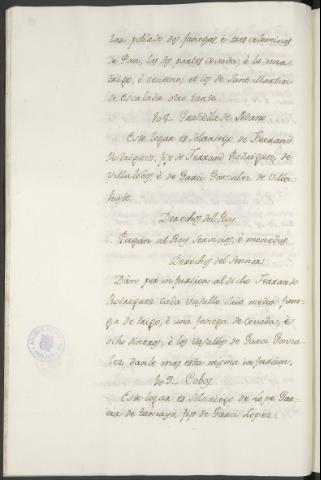 poblado dos fanegas, é tres celemines
de Pan, las dos partes cevada, é la una
trigo, é centeno; et los de Sant Martin
de Escalada otro tanto.
de Sedano
Este logar es Solariego de Ferrand
Rodriguez, fijo de Ferrand Rodriguez de
Villalobos, é de Garci Gonzalez de Villa-
Derechos del Rey
Pagan al Rey Servicios, é monedas.
Derechos del Sennor
Dan por infurcion al dicho Ferrando
Rodriguez cada Vasallo suio media fane-
ga de trigo, é una fanega de cevada, é
ocho dineros, é los Vasallos de Garci Gonza-
lez, danle mas esta misma infurcion.
Cobos
Este logar es Solariego de Lope Gar-
cia de Tamayo, fijo de Garci Lopez